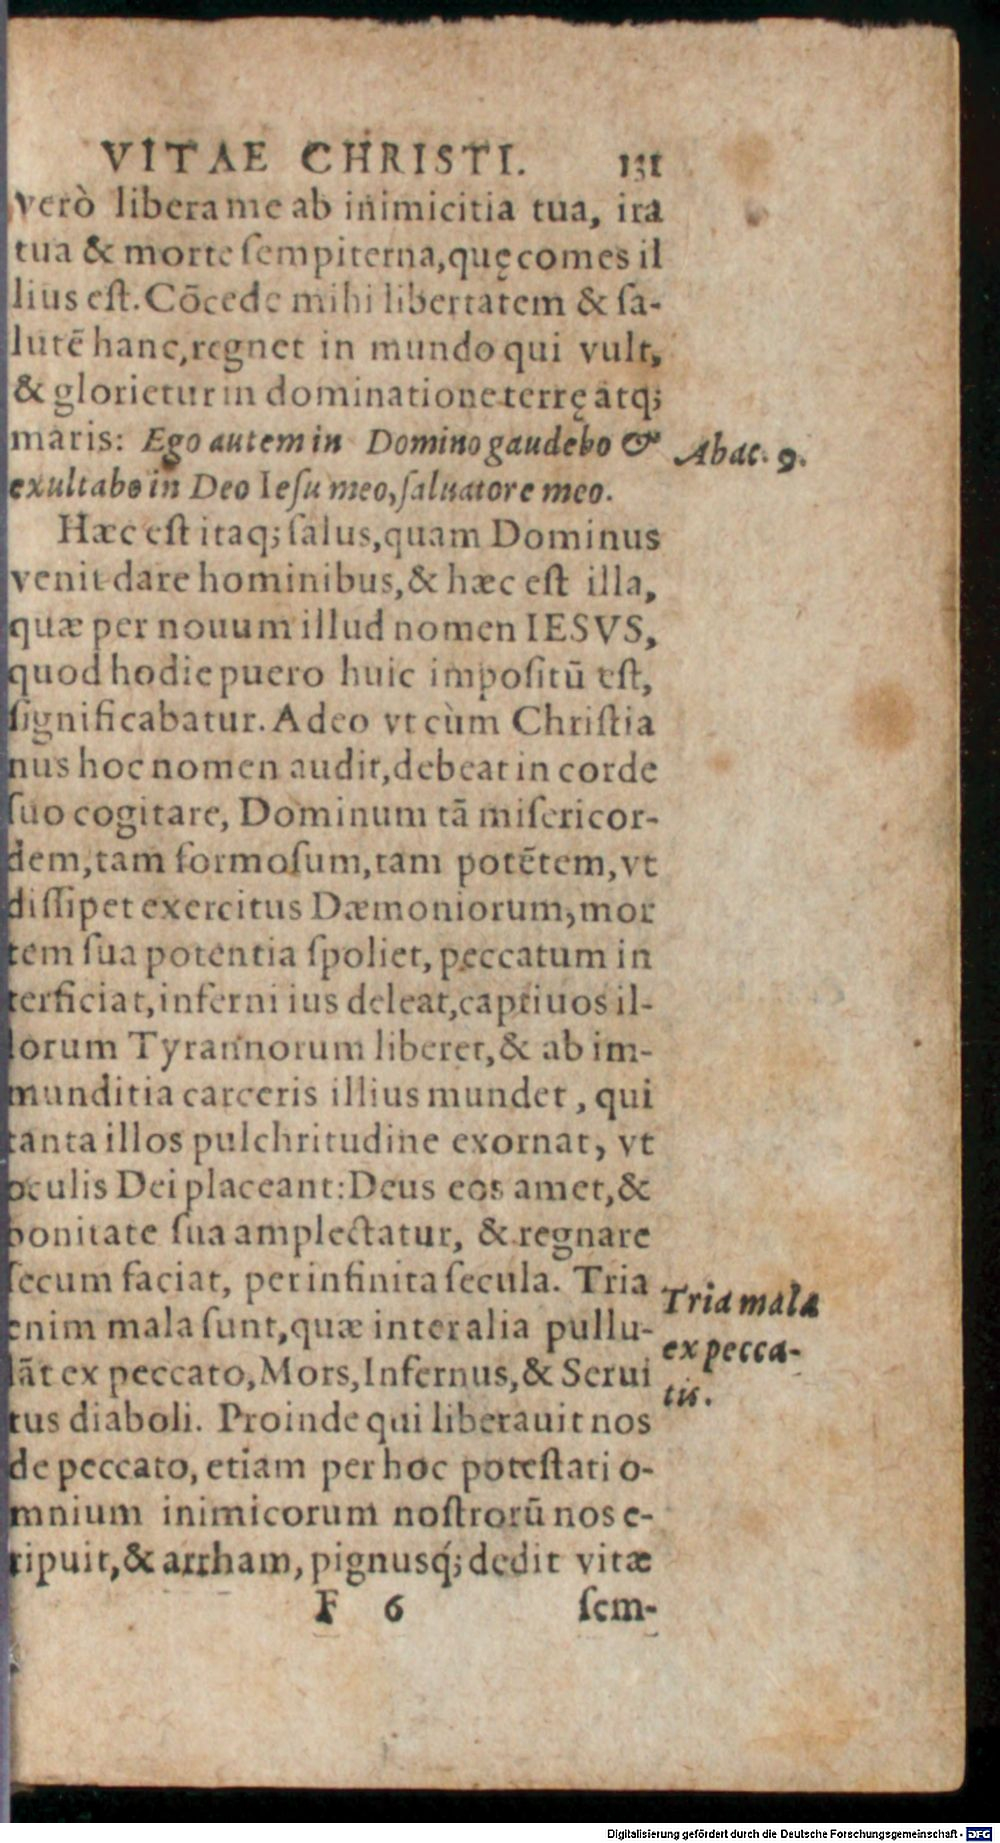 VITAE CHRISTI. 131
verò libera me ab inimicitia tua, ira
tua & morte ſempiterna, quę comes il
lius eſt. Cōcede mihi libertatem & ſa-
lutē hanc, regnet in mundo qui vult,
& glorietur in dominatione terrę atq;
maris: Ego autem in Domino gaudebo &
exultabo in Deo Ieſu meo, ſaluatore meo.
Abac. 9.
Hæc eſt itaq; ſalus, quam Dominus
venit dare hominibus, & hæc eſt illa,
quæ per nouum illud nomen IESVS,
quod hodie puero huic impoſitū eſt,
ſignificabatur. Adeo vt cùm Chriſtia
nus hoc nomen audit, debeat in corde
ſuo cogitare, Dominum tā miſericor-
dem, tam formoſum, tam potētem, vt
diſſipet exercitus Dæmoniorum, mor
tem ſua potentia ſpoliet, peccatum in
terficiat, inferni ius deleat, captiuos il-
lorum Tyrannorum liberet, & ab im-
munditia carceris illius mundet, qui
tanta illos pulchritudine exornat, vt
oculis Dei placeant: Deus eos amet, &
bonitate ſua amplectatur, & regnare
ſecum faciat, per infinita ſecula. Tria
enim mala ſunt, quæ inter alia pullu-
lāt ex peccato, Mors, Infernus, & Serui
tus diaboli. Proinde qui liberauit nos
de peccato, etiam per hoc poteſtati o-
mnium inimicorum noſtrorū nos e-
ripuit, & arrham, pignusq́; dedit vitæ
Tria mala
ex pecca-
tis.
F 6 ſem-
Digitalisierung gefördert durch die Deutsche Forschungsgemeinschaft - DFG